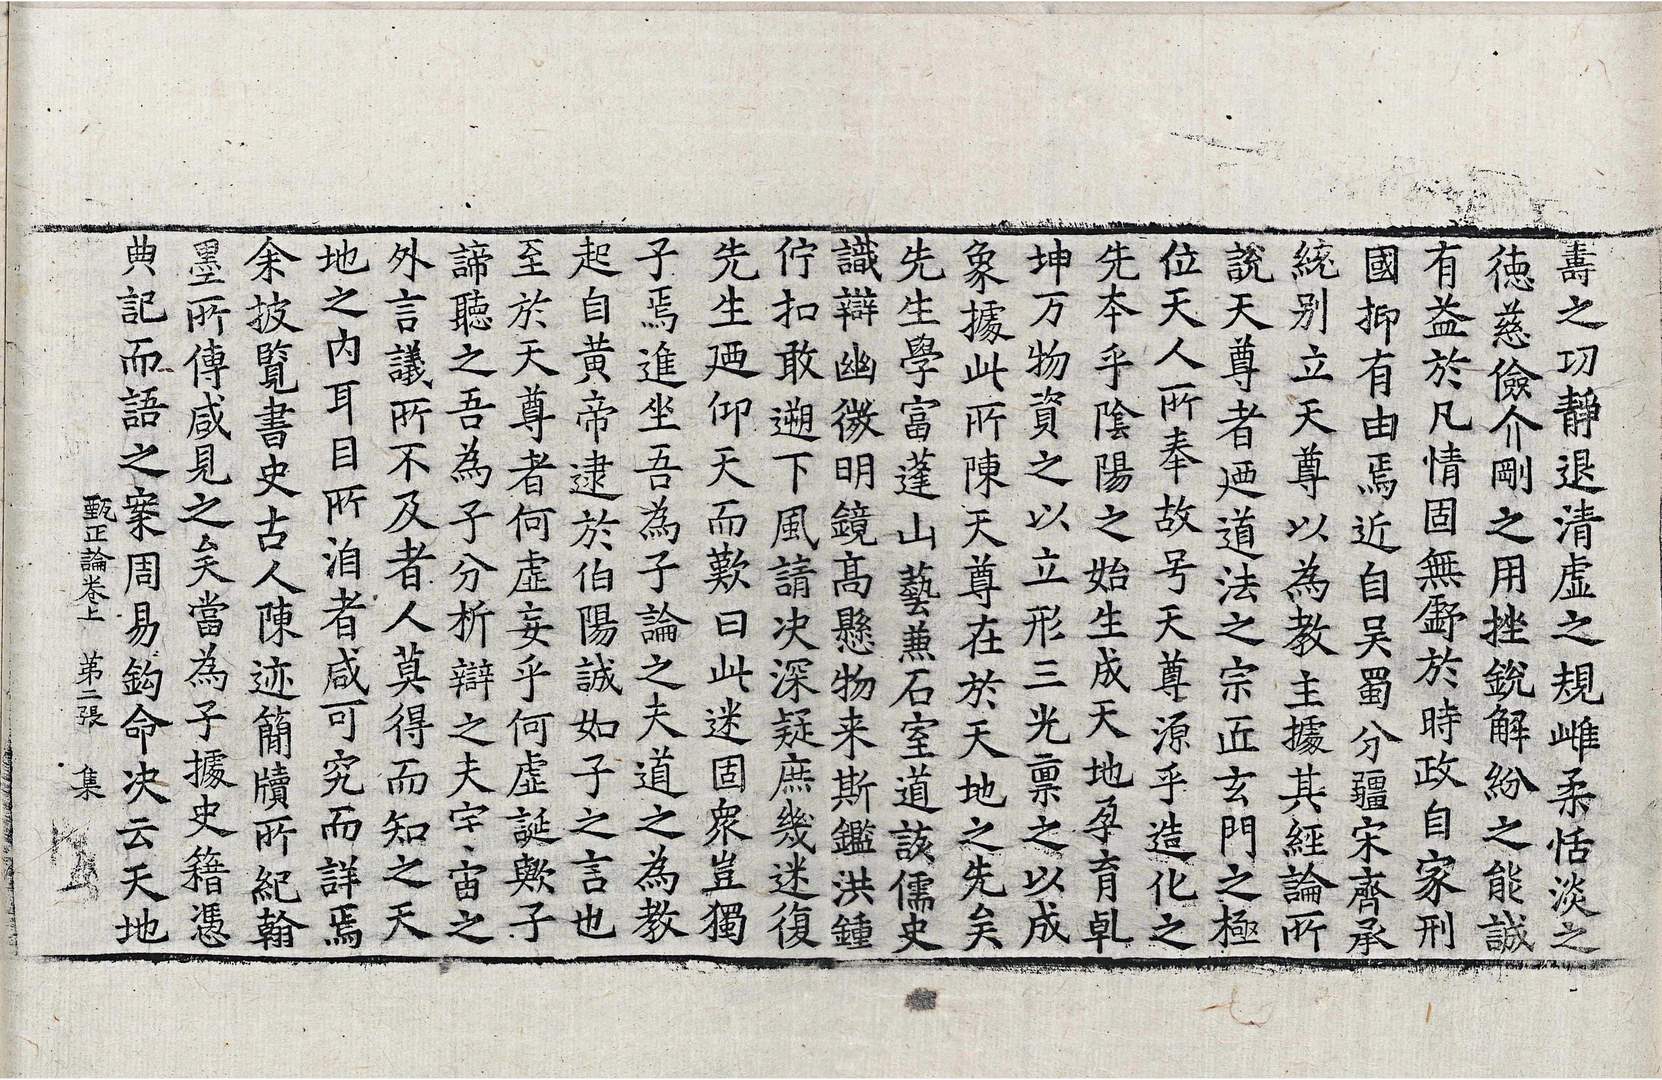 壽之功靜退清虛之規雌柔恬淡之
徳慈儉介剛之用挫銳解紛之能誠
有益於凡情固無虧於時政自家刑
國抑有由焉近自吴蜀分疆宋齊承
統别立天尊以為教主據其經論所
說天尊者迺道法之宗匠玄門之極
位天人所奉故号天尊源乎造化之
先夲乎陰陽之始生成天地孕育乹
坤万物資之以立形三光禀之以成
象據此所陳天尊在於天地之先矣
先生學富蓬山藝兼石室道該儒史
識辯幽微明鏡髙懸物来斯鑑洪鍾
佇扣敢遡下風請决深疑庶幾迷復
先生迺仰天而歎曰此迷固衆豈獨
子焉進坐吾為子論之夫道之為教
起自黄帝逮於伯陽誠如子之言也
至於天尊者何虛妄乎何虛誕歟子
諦聽之吾為子分析辯之夫宇宙之
外言議所不及者人莫得而知之天
地之内耳目所洎者咸可究而詳焉
余披覽書史古人陳迹簡牘所紀翰
墨所傳咸見之矣當為子據史籍憑
典記而語之案周易鈎命决云天地
甄正論卷上　第二張　集